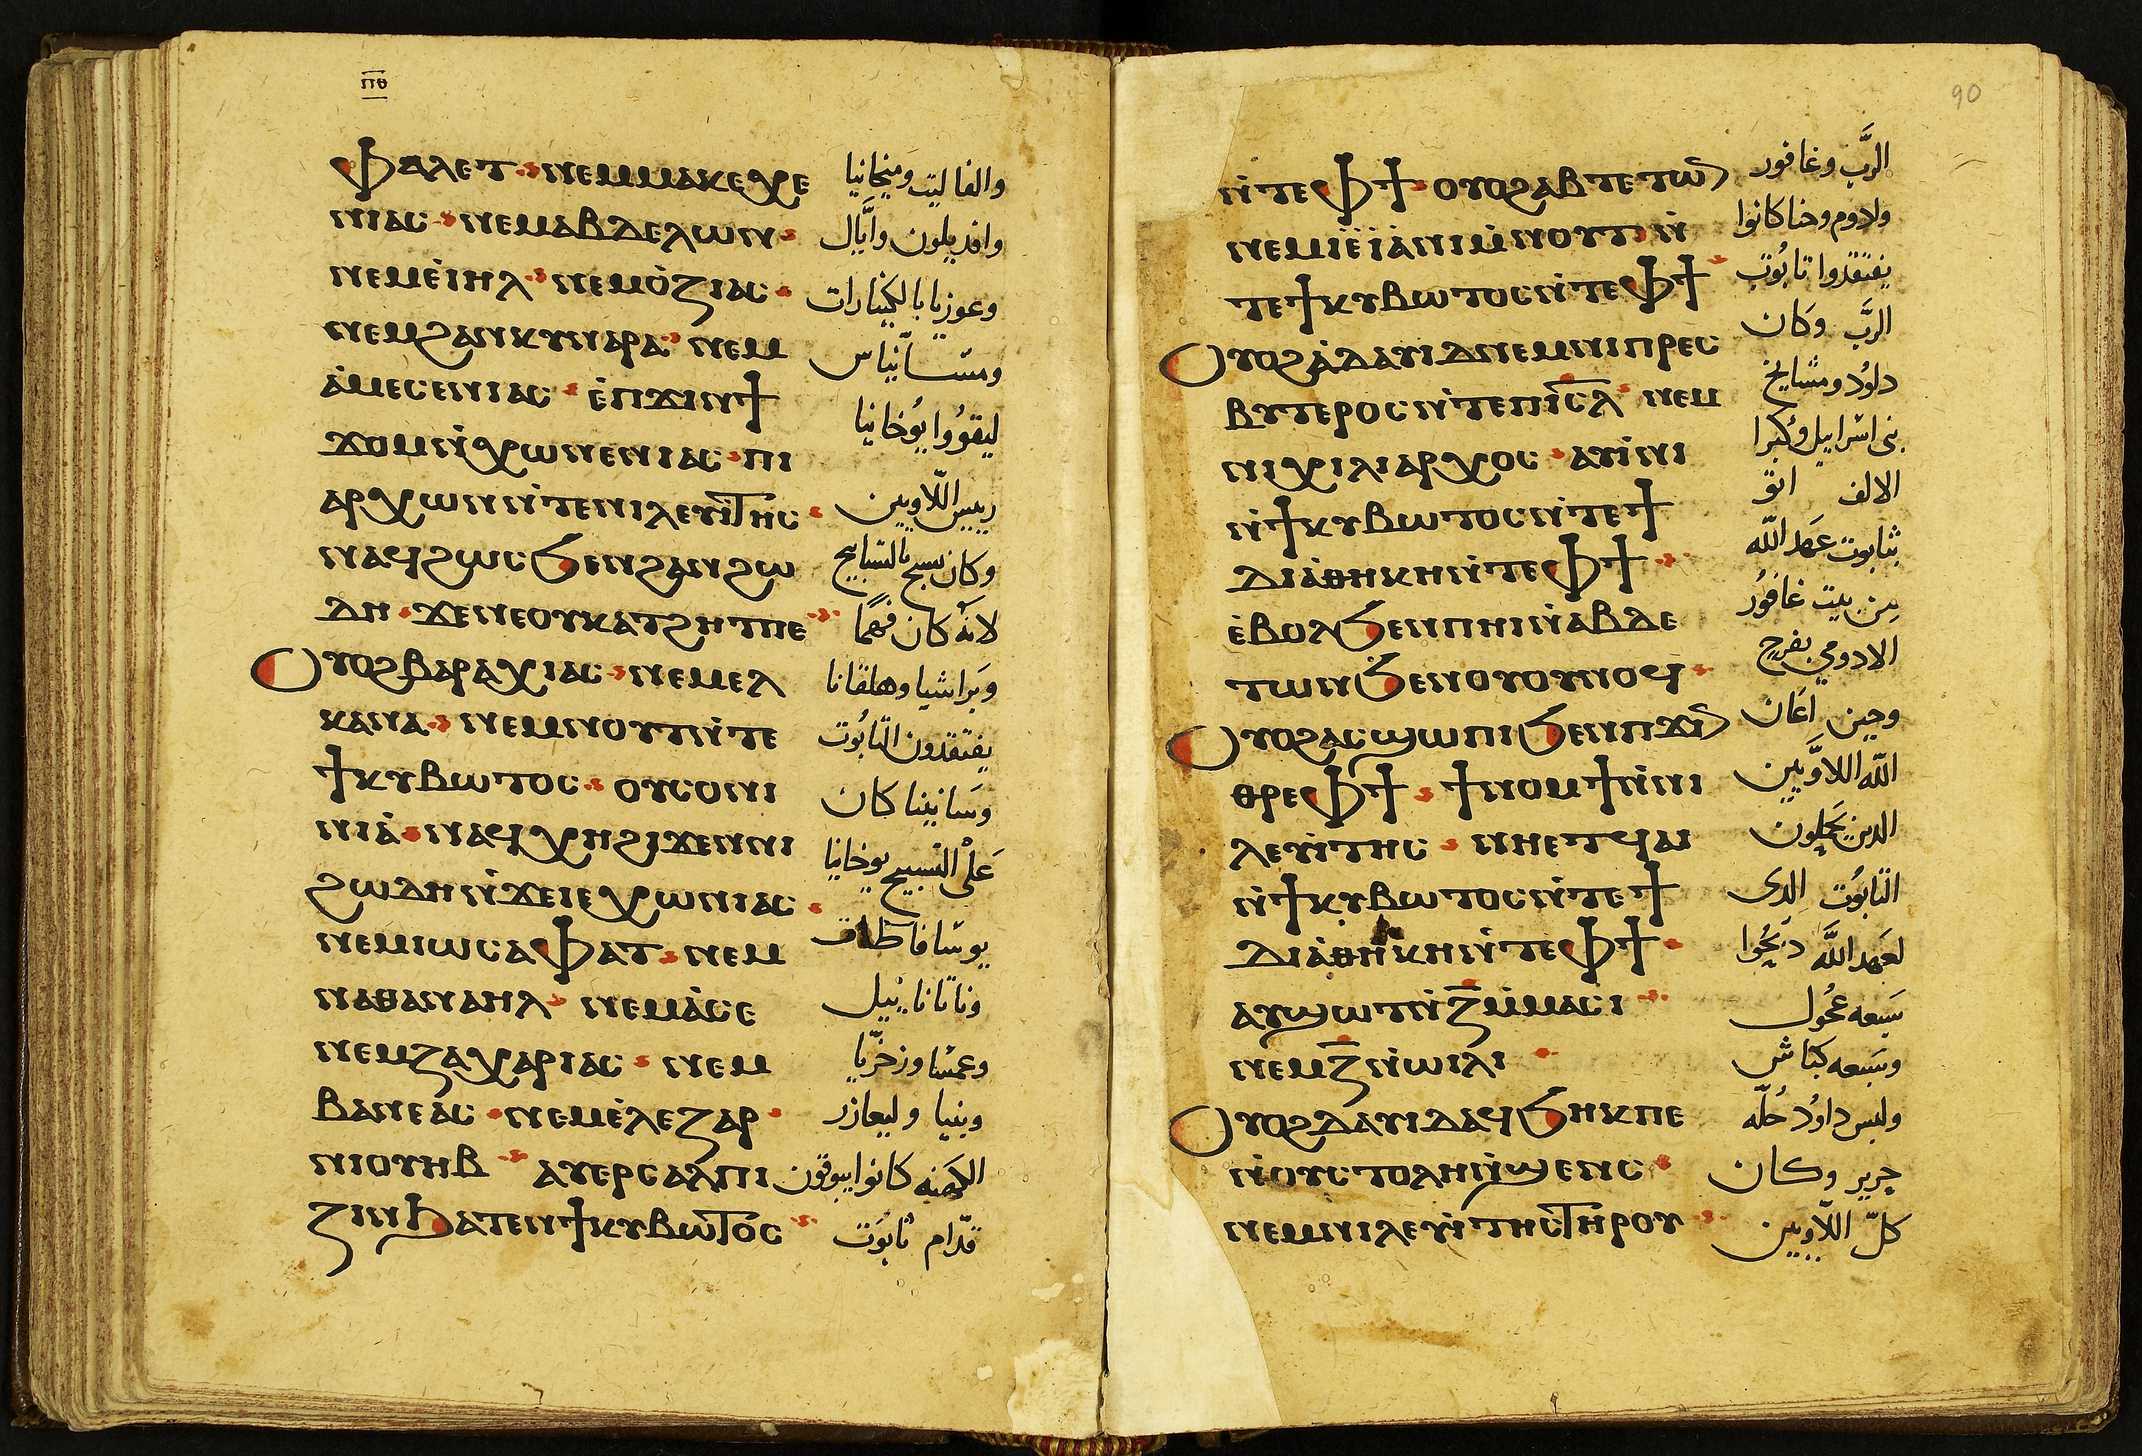 ⲡⲑ
ⲫⲁⲗⲉⲧ ⲛⲉⲙⲙⲁⲕⲉⲭⲉ
ⲛⲓⲁⲥ ⲛⲉⲙⲁⲃⲇⲉⲗⲱⲛ
ⲛⲉⲙⲉ̀ⲓⲏⲗ ⲛⲉⲙⲟ̀ⲍⲓⲁⲥ
ⲛⲉⲙϩⲁⲛⲕⲩⲛⲁⲣⲁ ⲛⲉⲙ
ⲁ̀ⲙⲉⲥⲉⲛⲓⲁⲥ ⲉ̀ⲡϫⲓⲛϯ
ϫⲟⲙⲛ̀ⲭⲱⲛⲉⲛⲓⲁⲥ ⲡⲓ
ⲁⲣⲭⲱⲛⲛ̀ⲧⲉⲛⲓⲗⲉⲩⲓ̀ⲧⲏⲥ
ⲛⲁϥϩⲱⲥϧⲉⲛϩⲁⲛϩⲱ
ⲇⲏ ϫⲉⲛⲉⲟⲩⲕⲁⲧϩⲏⲧⲡⲉ
ⲟⲩⲟϩⲃⲁⲣⲁⲭⲓⲁⲥ ⲛⲉⲙⲉⲗ
ⲕⲁⲛⲁ ⲛⲉⲙⲛⲟⲩⲧⲛ̀ⲧⲉ
ϯⲕⲩⲃⲱⲧⲟⲥ ⲟⲩⲥⲟⲛⲓ
ⲛⲓⲁ̀ ⲛⲁϥⲭⲏϩⲓϫⲉⲛⲛⲓ
ϩⲱⲇⲏⲛ̀ϫⲉⲓⲉⲭⲱⲛⲓⲁⲥ
ⲛⲉⲙⲓⲱⲥⲁⲫⲁⲧ ⲛⲉⲙ
ⲛⲁⲑⲁⲛⲁⲏⲗ ⲛⲉⲙⲁ̀ⲥⲉ
ⲛⲉⲙⲍⲁⲭⲁⲣⲓⲁⲥ ⲛⲉⲙ
ⲃⲁⲛⲉⲁⲥ ⲛⲉⲙⲉ̀ⲗⲉⲍⲁⲣ
ⲛⲓⲟⲩⲏⲃ ⲁⲩⲉⲣⲥⲁⲗⲡⲓ
ⲍⲓⲛϧⲁⲧⲉⲛϯⲕⲩⲃⲱⲧⲟⲥ
والفاليت ومنخانيا
وافديلون وايَّال
وعوزيا بالكينارات
ليقوُوا يُوخانيا
رييس اللّاويين
وكان يسبح بالتسابيح
لانه كان فهمًا
وبَراشيا وهلقانا
يفتقدون التابُوت
وسَانينا كان
علَى التسبيح يوخانيا
وناتانا ييل
وعمسا وزخّريا
وبنيا وليعازر
الكهنه كانوا يبوقون
قدّام تابوَت
90
ⲛ̀ⲧⲉⲫϯ ⲟⲩⲟϩⲁⲃⲧⲉⲧⲱⲙ
ⲛⲉⲙⲓⲉ̀ⲓⲁ̀ⲛⲓⲙ̀ⲛⲟⲩⲧ ⲛ̀
ⲧⲉϯⲕⲩⲃⲱⲧⲟⲥⲛ̀ⲧⲉⲫϯ
ⲟⲩⲟϩⲁ̀ⲇⲁⲩⲓⲇⲛⲉⲙⲛⲓⲡⲣⲉⲥ
ⲃⲩⲧⲉⲣⲟⲥⲛ̀ⲧⲉⲡⲓⲥ̅ⲗ ⲛⲉⲙ
ⲛⲓⲭⲓⲗⲓⲁⲣⲭⲟⲥ ⲁⲩⲓ̀ⲛⲓ
ⲛ̀ϯⲕⲩⲃⲱⲧⲟⲥⲛ̀ⲧⲉϯ
ⲇⲓⲁ̀ⲑⲏⲕⲏⲛ̀ⲧⲉⲫϯ
ⲉ̀ⲃⲟⲗϧⲉⲛⲡⲏⲓⲛ̀ⲁⲃⲇⲉ
ⲧⲱⲛϧⲉⲛⲟⲩⲟⲩⲛⲟϥ
ⲟⲩⲟϩⲁⲥϣⲱⲡⲓϧⲉⲛⲡϫⲓⲛ
ⲑⲣⲉⲫϯ ϯⲛⲟⲙϯⲛ̀ⲛⲓ
ⲗⲉⲩⲓ̀ⲧⲏⲥ ⲛⲏⲉⲧϥⲁⲓ
ⲛ̀ϯⲕⲩⲃⲱⲧⲟⲥⲛ̀ⲧⲉϯ
ⲇⲓⲁ̀ⲑⲏⲕⲏⲛ̀ⲧⲉⲫϯ
ⲁⲩϣⲱⲧⲛ̀ⲍ̅ⲙ̀ⲙⲁⲥⲓ
ⲛⲉⲙⲍ̅ⲛ̀ⲱⲓⲗⲓ
ⲟⲩⲟϩⲇⲁⲩⲓⲇⲁϥϧⲏⲕⲡⲉ
ⲛ̀ⲟⲩⲥⲧⲟⲗⲏⲛ̀ϣⲉⲛⲥ
ⲛⲉⲙⲛⲓⲗⲉⲩⲓ̀ⲧⲏⲥⲧⲏⲣⲟⲩ
الربّ وغافور
ولادوم وحنا كانوا
يفتقدوا تابُوت
الربّ وكان
داوُد ومشايخ
بنى اسراييل وكبرا
الالف اتو
بتابوت عَهد اللّه
من بيت غافوُر
الادومي بفرح
وحين اعَان
اللّه اللاوَّيين
الذين يحملون
التابوُت الدى
لعَهد اللّه دبَحُوا
سَبعه عجُول
وسَبعه كباش
ولبس داوُد حُلّه
حرير وكان
كلّ اللّاويين